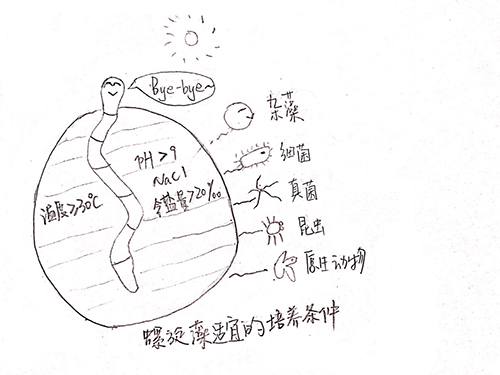 Bye-bye~
杂藻
PH>9
细菌
NaCl
真菌
温度≥30℃
含盐量>20‰
昆虫
原生动物
螺旋藻适宜的培养条件